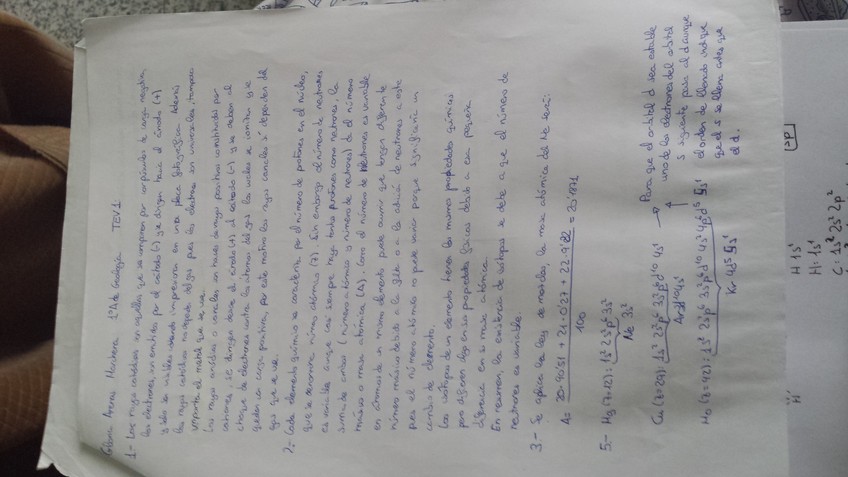 Gloria Arenas 1º A de Geología TEV 1
1.- Los rayos catódicos son aquellos que se componen por corpúsculos de carga negativa,
los electrones, son emitidos por el cátodo (-) y se dirigen hacia el ánodo (+)
y sólo son visibles usando impresión en una placa fotográfica. Además
los rayos catódicos no dependen del gas pues los electrones son universales, tampoco
importa el metal que se use.
Los rayos anódicos o canales son haces de rayos positivos constituidos por
cationes, se dirigen desde el ánodo (+) al cátodo (-) y se deben al
choque de electrones contra los átomos del gas los cuales se ionizan y se
quedan con carga positiva, por este motivo los rayos canales sí dependen del
gas que se use.
2.- Cada elemento químico se caracteriza por el número de protones en el núcleo,
que se denomina número atómico (Z). Sin embargo el número de neutrones
es variable aunque casi siempre haya tantos protones como neutrones. La
suma de ambos (número atómico y número de neutrones) da el número
másico o masa atómica (A). Como el número de neutrones es variable
en átomos de un mismo elemento puede ocurrir que tengan diferente
número másico debido a la o a la adición de neutrones a este
pero el número atómico no puede variar porque significaría un
cambio de elemento.
Los isótopos de un elemento tienen las mismas propiedades químicas
pero difieren algo en sus propiedades físicas debido a esa pequeña
diferencia en su masa atómica.
En resumen, la existencia de isótopos se debe a que el número de
neutrones es variable.
3.- Se aplica la masa atómica del Ne será:
A = 20·90'51 + 21·0'27 + 22·9'22 = 20'1871
100
5.- Mg (Z=12): 1s² 2s² p⁶ 3s²
Ne 3s²
Cu (Z=29): 1s² 2s² p⁶ 3s² p⁶ d¹⁰ 4s¹ → Para que el orbital d sea estable
uno de los electrones del orbital
s siguiente pasa al d aunque
el orden de llenado indique
que el s se llena antes que
el d.
Ar d¹⁰ 4s¹
Mo (Z=42): 1s² 2s² p⁶ 3s² p⁶ d¹⁰ 4s² 4p⁶ d⁵ 5s¹
Kr 4d⁵ 5s¹
H 1s¹
H: 1s¹
C: 1s² 2s² 2p²
sp
H